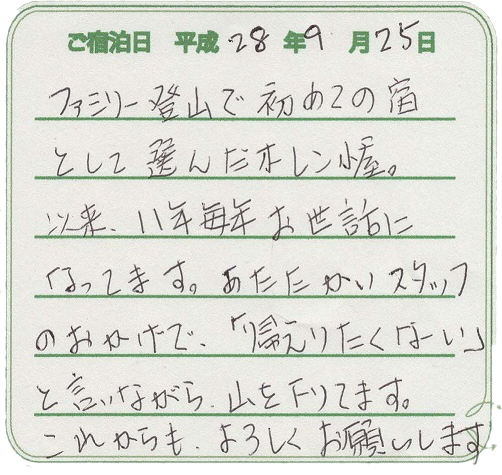 ご宿泊日 平成 28 年 9 月 25 日
ファミリー登山で初めての宿
として選んだオーレン小屋。
以来、11年毎年お世話に
なってます。あたたかいスタッフ
のおかげで、「帰えりたくなーい」
と言いながら、山を下りてます。
これからも、よろしくお願いします